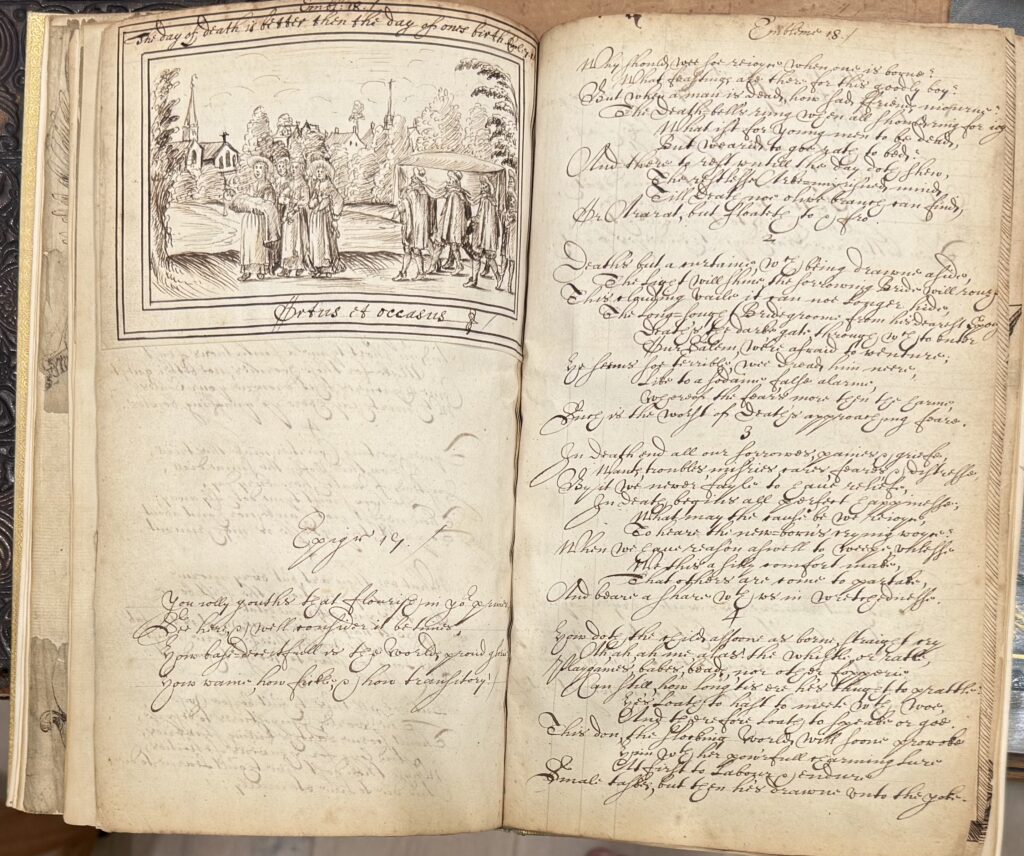 Embl: 18. /
The day of death is better then the day of ones birth Eccles. 7.
Ortus et occasus
Epigr 17. /
You iolly youths that flourish in yor prime,
See here, & well consider it betimes,
How base deceitfull is the worlds proud glory
How vaine, how fickle, & how transitory!
Embleme 18. /
Why should wee soe reioyce when one is borne?
What feastings are there for this goodly boy?
But when a man is dead, how sad, friends mourne?
The Deaths-bells ring when all should ring for ioy
What ist for young men to be dead,
But wearied to goe rath to bed;
And there to rest untill the day doth shew,
The restlesse mind,
Till Death noe olive branch can find,
Or Ararat, but floateth to & fro.
2
Deaths but a curtaine, wch being drawne aside,
The light will shine, the sorrowing Bride will rouze
This vaile it can noe longer hide,
The long-sought Bridegroome from his dearest Spouse
Death's the darke gate through wch to enter
Our Salem, were afraid to venture;
He seems soe terrible, wee dread him neere,
Like to a sodaine false alarme,
Whereof the fear's more then the harme,
Such is the worst of Deaths approaching feare.
3
In death end all our sorrowes, paines & griefe,
Wants troubles misries cares feares & distresse,
By it we never fayle to have reliefe,
In death begins all perfect happinesse;
What may the cause be we reioyce,
To heare the new-born's crying voyce?
When we have reason aswell to weepe unlesse
We this a silly comfort make,
That others are come to partake,
And beare a share wth us in wretchednesse
4
How doth the child assoone as borne, straight cry
Ah ah me, alas the whistle or rattle
Playgames, babes, beads, nor other fopperie
Can still, how long tis ere he's taught to prattle:
He's loath to hast to meete wth woe,
And therefore loath to speake or goe.
This don, the flocking world, will soone provoke
Him wth her powrfull charming lure
At first to Labour & endure
Smale taskes, but then he's drawne unto the yoke.